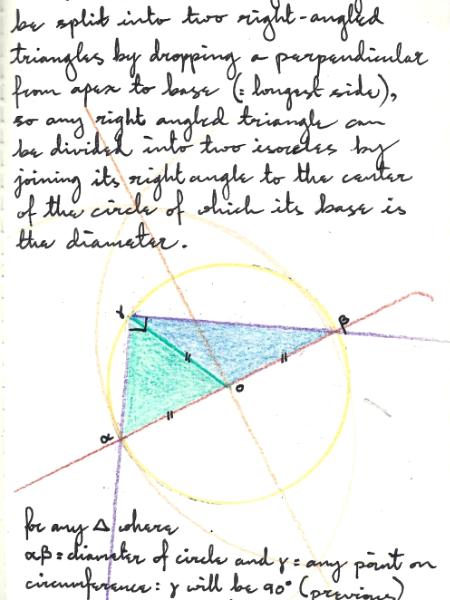 be split into two right-angled
triangles by dropping a perpendicular
from apex to base (= longest side),
so any right angled triangle can
be divided into two isoceles by
joining its right angle to the center
of the circle of which its base is
the diameter.
γ
β
o
α
for any Δ where
αβ = diameter of circle and γ = any point on
circumference: γ will be 90° (previous)